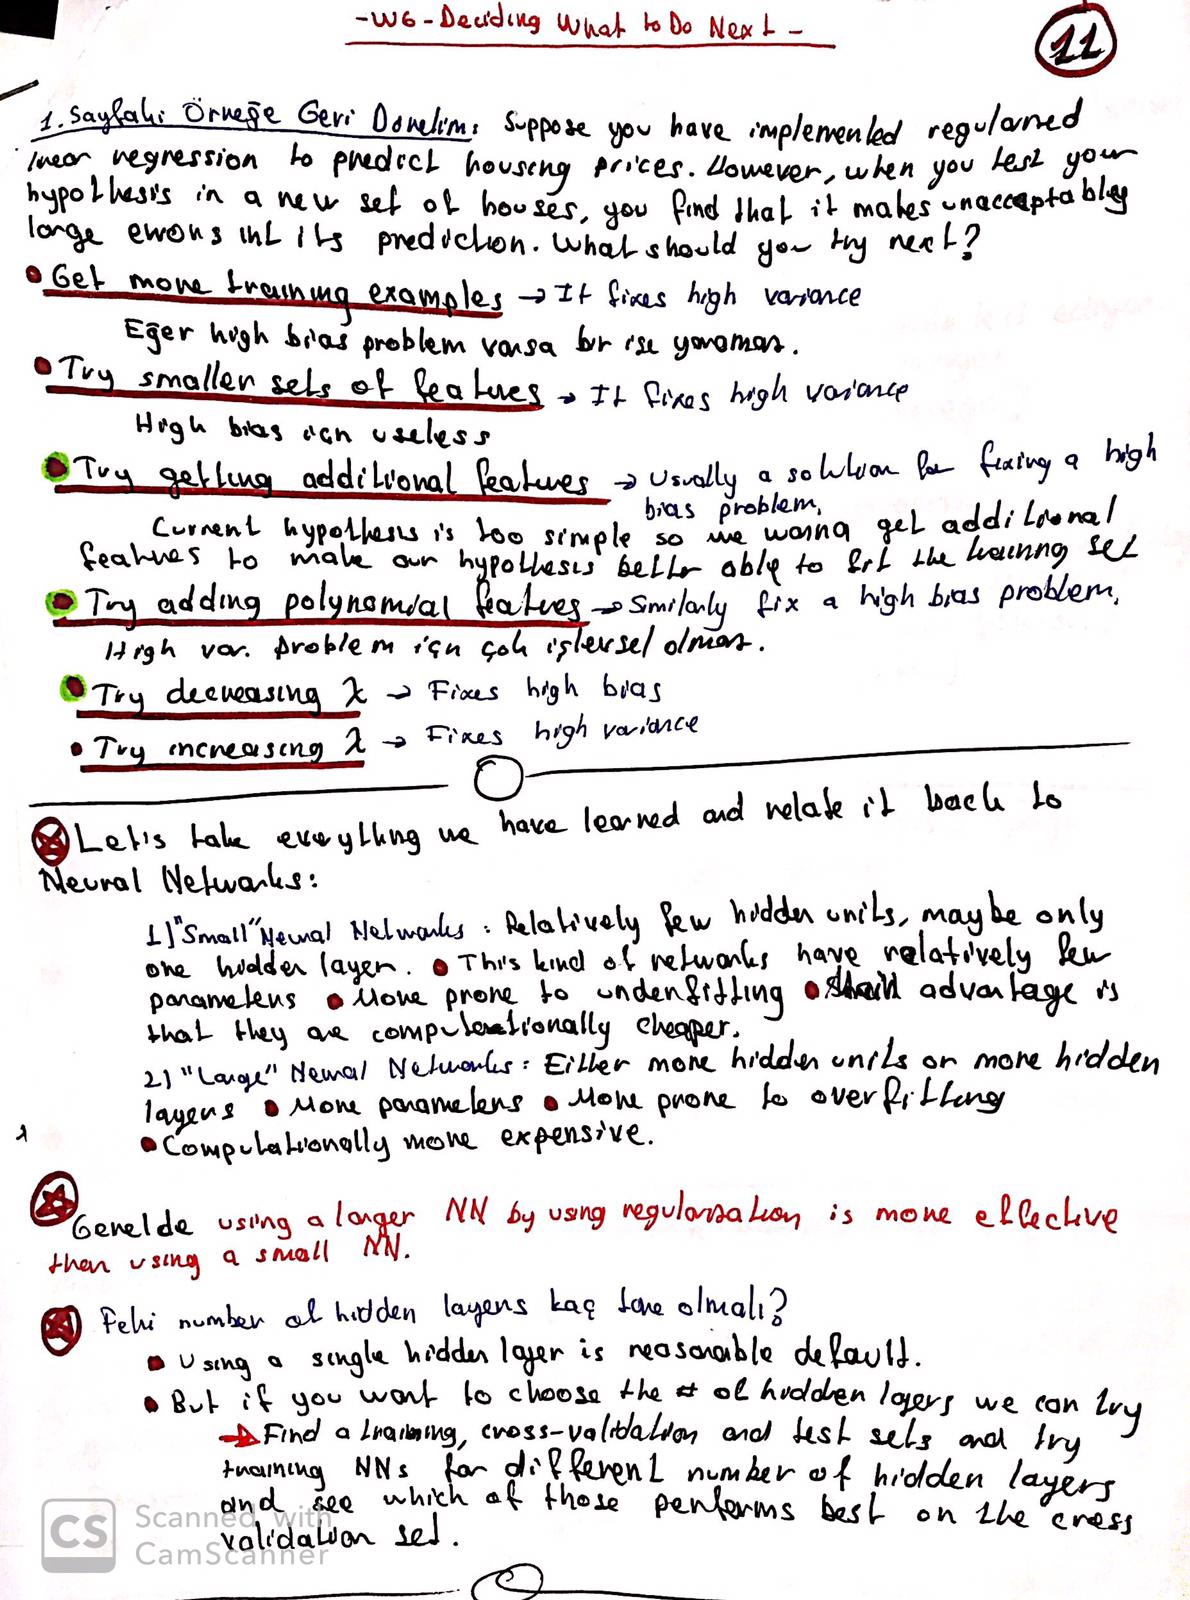 -W6-Deciding What to Do Next-
11
1. Sayfaki Örneğe Geri Dönelim: Suppose you have implemented regularized
linear regression to predict housing prices. However, when you test your
hypothesis in a new set of houses, you find that it makes unacceptabley
large errors int its prediction. What should you try next?
• Get more training examples → It fixes high variance
Eğer high bias problem varsa bir işe yaramaz.
• Try smaller sets of features → It fixes high variance
High bias için useless
• Try getting additional features → Usually a solution for fixing a high
bias problem.
Current hypothesis is too simple so we wanna get additional
features to make our hypothesis better able to fit the training set
• Try adding polynomial features → Similarly fix a high bias problem.
High var. problem için çok işlevsel olmaz.
• Try decreasing λ → Fixes high bias
• Try increasing λ → Fixes high variance
Let's take everything we have learned and relate it back to
Neural Networks:
1) "Small" Neural Networks: Relatively few hidden units, maybe only
one hidden layer. • This kind of networks have relatively few
parameters • More prone to underfitting • advantage is
that they are computationally cheaper.
2) "Large" Neural Networks: Either more hidden units or more hidden
layers • More parameters • More prone to overfitting
• Computationally more expensive.
Genelde using a larger NN by using regularization is more effective
then using a small NN.
Peki number of hidden layers kaç tane olmalı?
• Using a single hidden layer is reasonable default.
• But if you want to choose the # of hidden layers we can try
→ Find a training, cross-validation and test sets and try
training NNs for different number of hidden layers
and see which of those performs best on the cross
validation set.
CS Scanned with
CamScanner